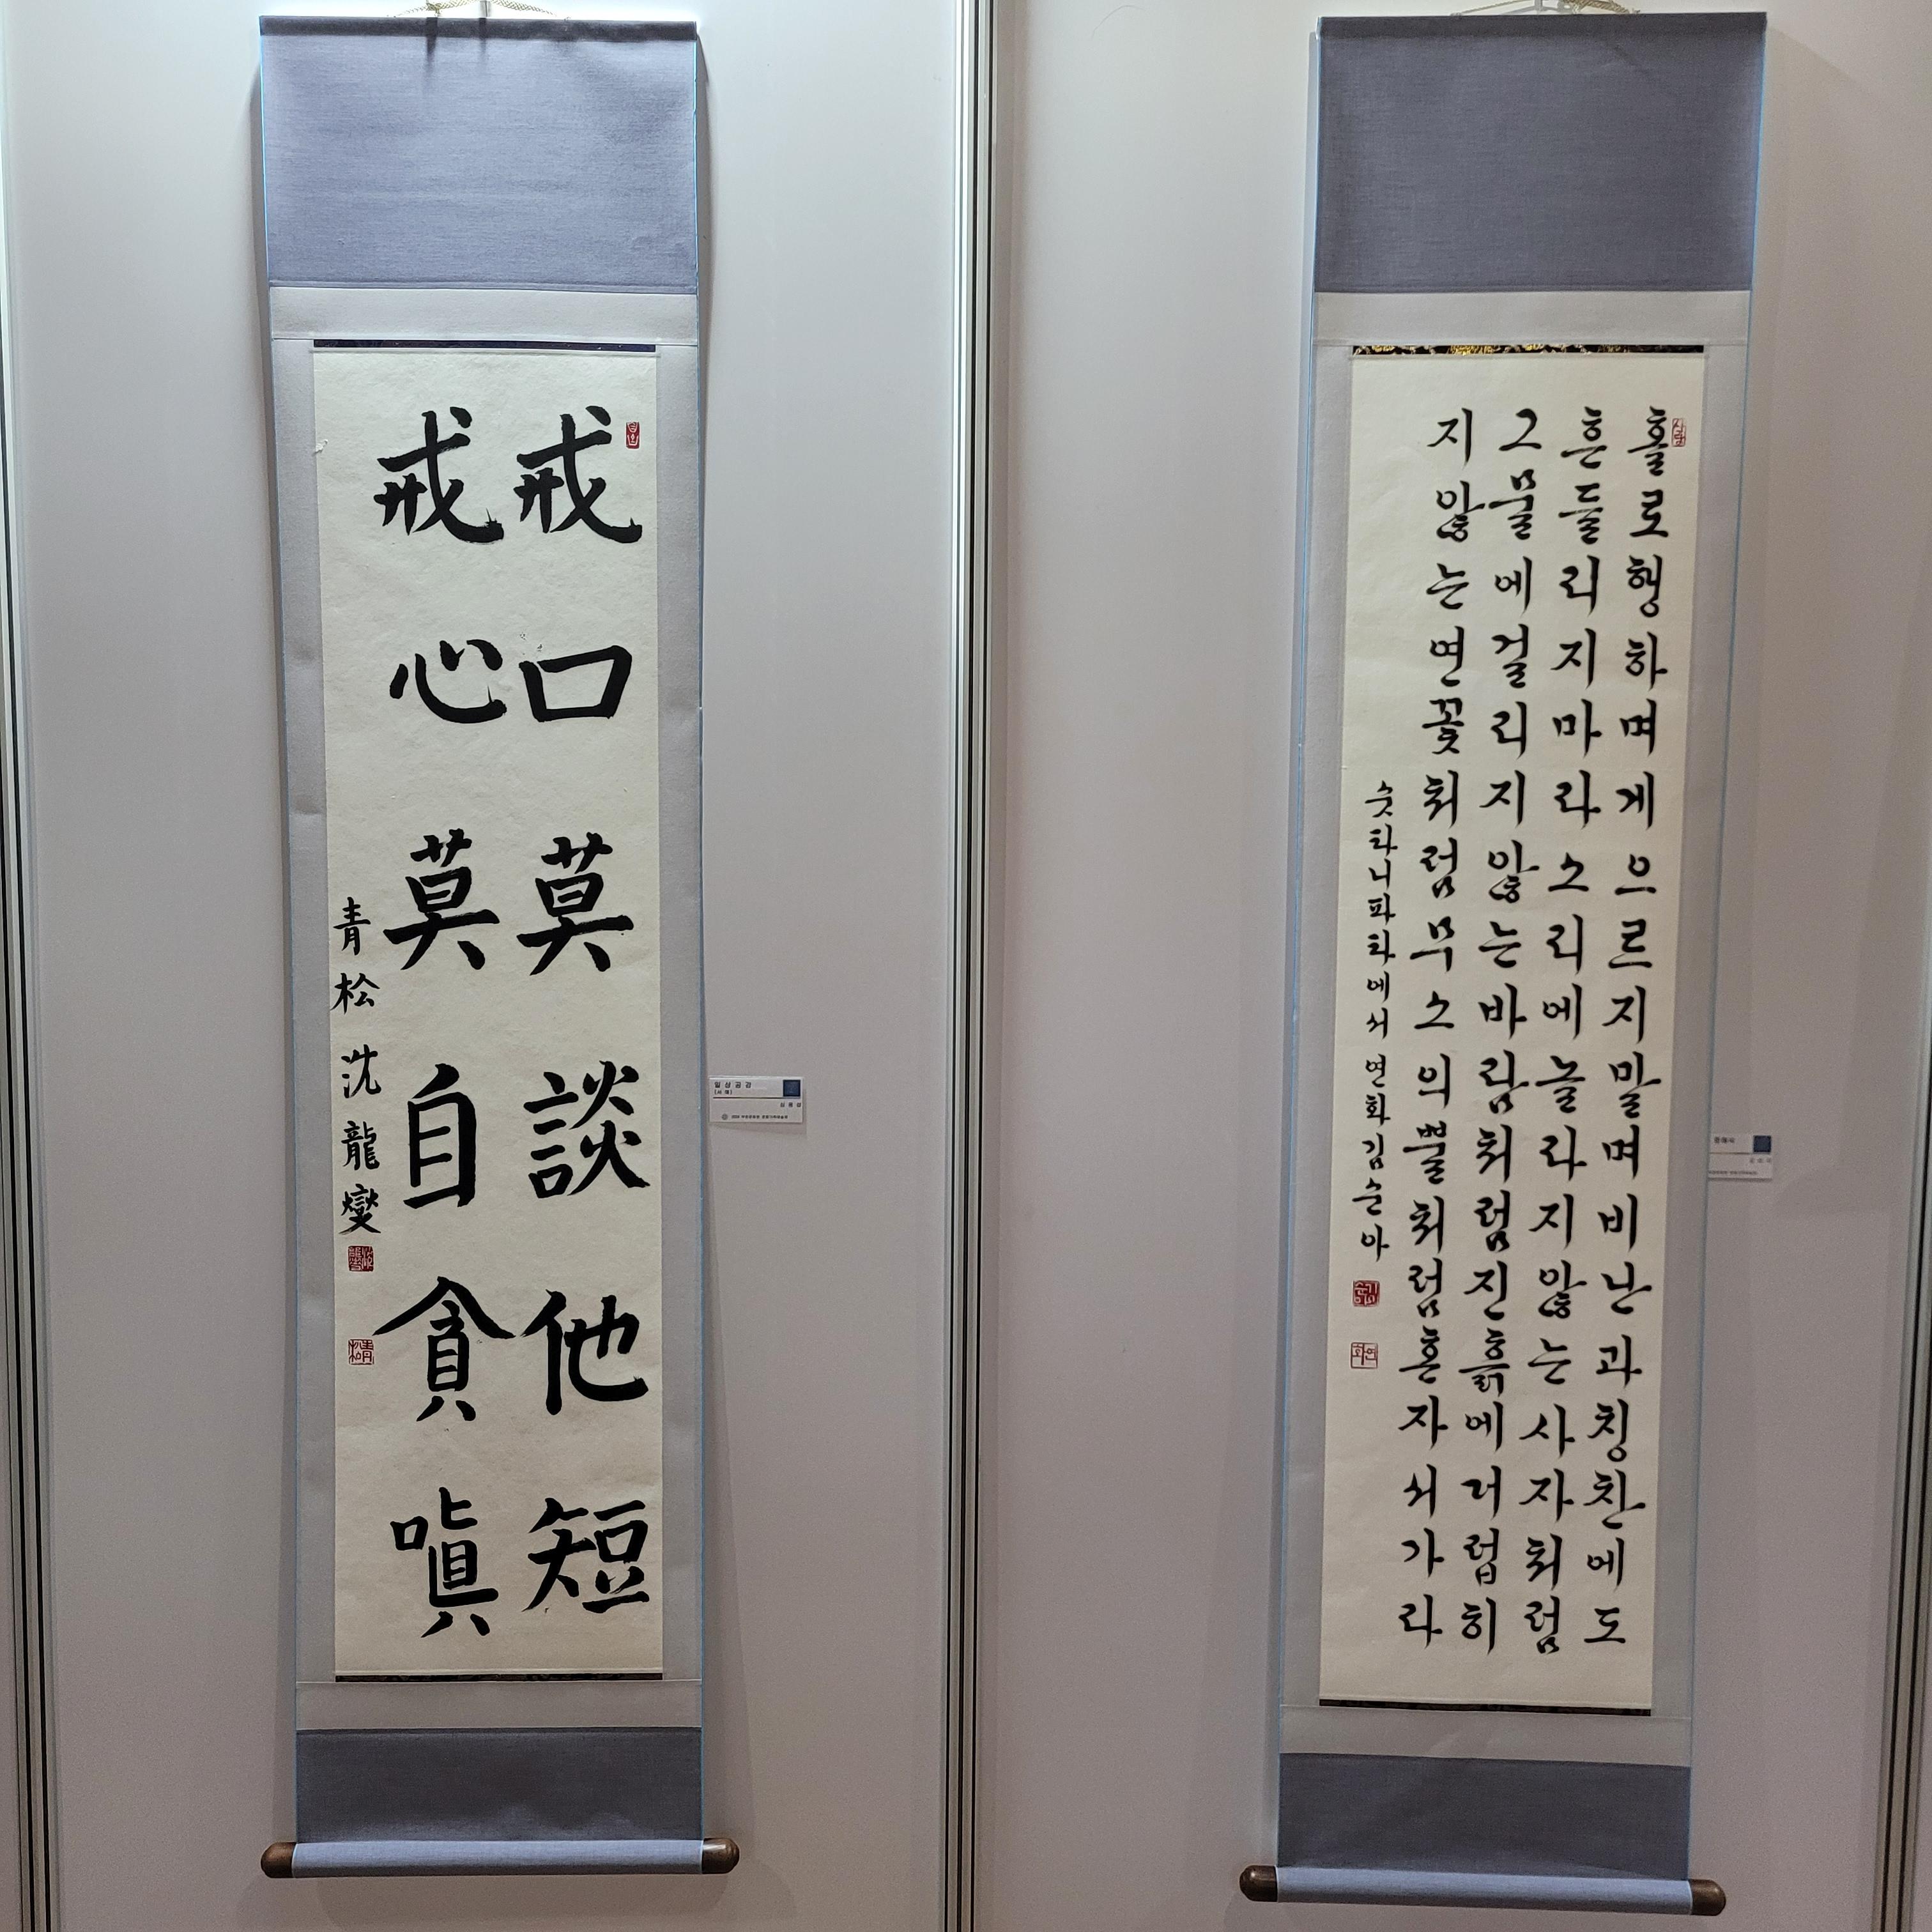 戒口莫談他短
戒心莫自貪嗔
青松 沈龍燮
일상공감
홀로행하며게으르지말며비난과칭찬에도
흔들리지마라소리에놀라지않는사자처럼
그물에걸리지않는바람처럼진흙에더럽히
지않는연꽃처럼무소의뿔처럼혼자서가라
숫타니파타에서 연화김순아